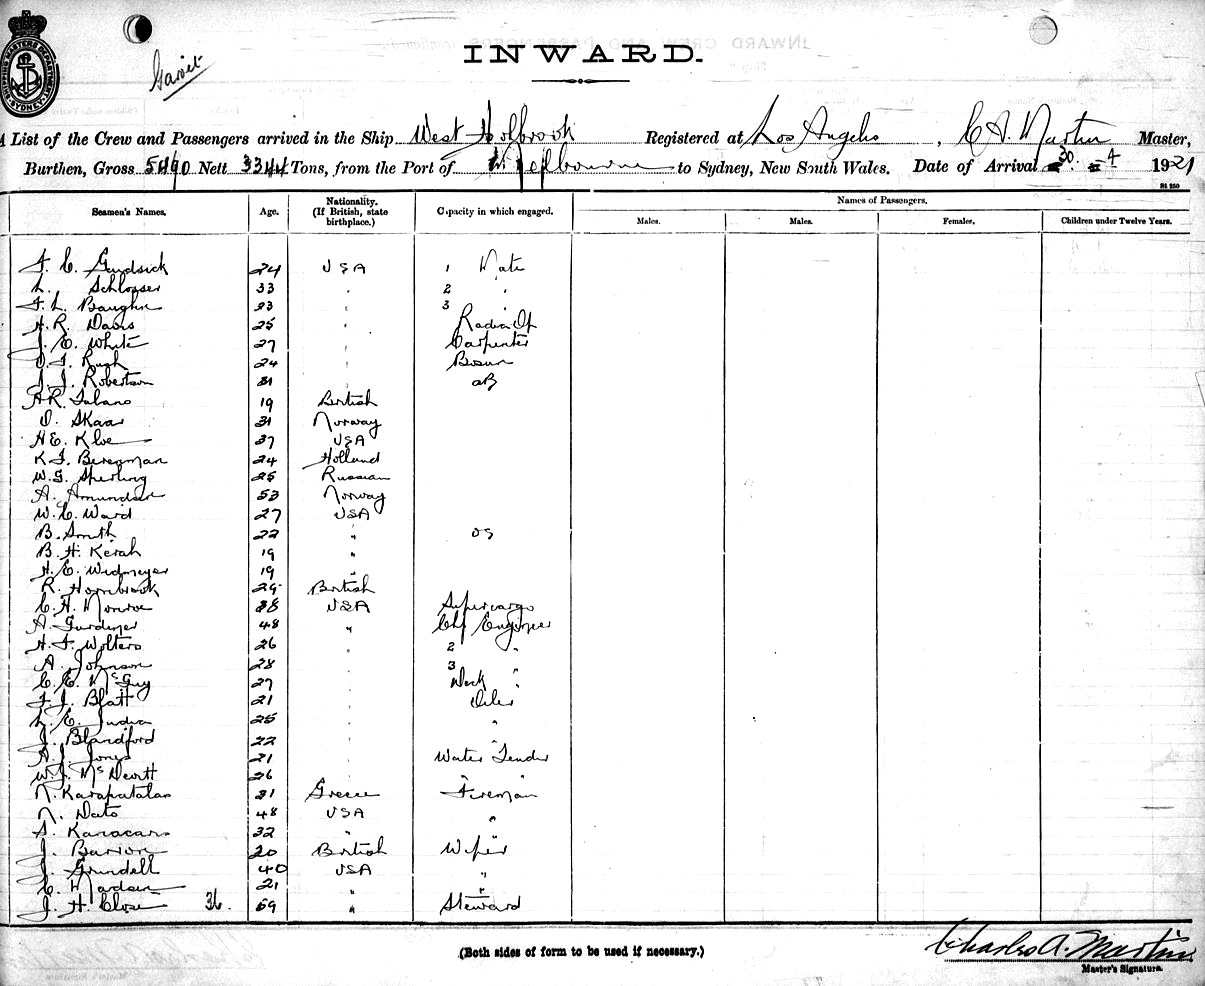 SHIPPING MASTERS DEPARTMENT SYDNEY
INWARD.
A List of the Crew and Passengers arrived in the Ship West Holbrook Registered at Los Angeles, C A. Martin Master,
Burthen, Gross 5490 Nett 3344 Tons, from the Port of Melbourne to Sydney, New South Wales. Date of Arrival 30. 4 1921
St 250
Seamen's Names. Age. Nationality. (If British, state birthplace.) Capacity in which engaged. Names of Passengers.
Males. Males. Females. Children under Twelve Years.
F. C. 24 USA 1 Mate
L. Schlosser 33 " 2 "
F. L. Baughn 23 " 3 "
H. R. Davis 25 " Radio Op
J. E. White 27 " Carpenter
O. F. Rugh 24 " Bosun
J. J. Robertson 31 " AB
A R. 19 British
O. Skaar 31 Norway
H E. Kloe 37 USA
K F. Bergman 24 Holland
W. G. Sperling 25 Russian
A. Amundsen 53 Norway
W. C. Ward 27 USA
B. Smith 22 " OS
B. H. Kerah 19 "
H. E. Widmeyer 19 "
R. Hornbrook 29 British
C. H. Monroe 38 USA Supercargo
A. Gurdiner 48 " Chf Engineer
H. F. Wolters 26 " 2 "
A. Johnson 28 " 3 "
C. E. McGuy 27 " Deck "
F. J. Blatt 21 " Oiler
L. E. Judia 25 " "
J. Blandford 22 " "
A. J. Jones 21 " Water Tender
W. J. McDevitt 26 " " "
N. Karapatalas 31 Greece Fireman
N. Dato 48 USA "
S. Karacars 32 " "
J. Barron 20 British Wiper
J. Grindell 40 USA "
C. Madsen 21 " "
J. H. Close 36. 59 " Steward
(Both sides of form to be used if necessary.)
Charles A. Martin
Master's Signature.